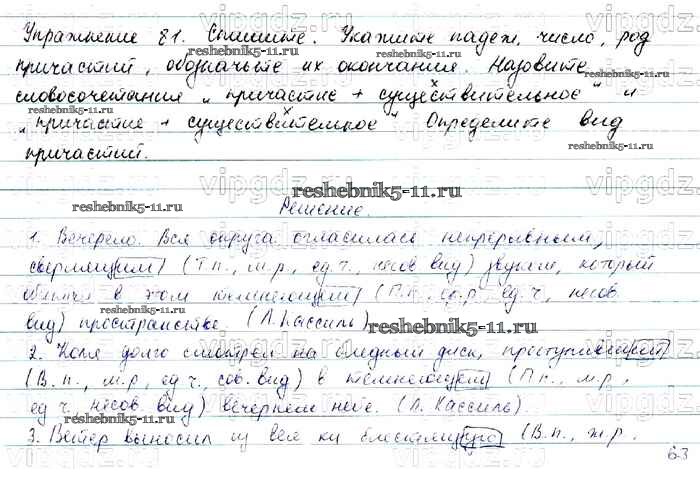 Упражнение 81. Спишите. Укажите падеж, число, род
причастий, обозначьте их окончания. Назовите
словосочетания „причастие + существительное" и
„причастие + существительное" Определите вид
причастий.
Решение.
1. Вечерело. Вся округа огласилась непрерывным,
сверлящим (Т.п., м.р., ед.ч., несов вид) звуком, который
в этом темнеющем (П.п., ср.р, ед.ч., несов.
вид) пространстве. (Л. Кассиль)
2. Коля долго смотрел на бледный диск, проступивший
(В.п., м.р., ед.ч., сов. вид) в темнеющем (П.п., м.р.,
ед.ч. несов вид) вечернем небе. (Л. Кассиль).
3. Ветер выносил из (В.п., ж.р.
63
reshebnik5-11.ru
vipgdz.ru